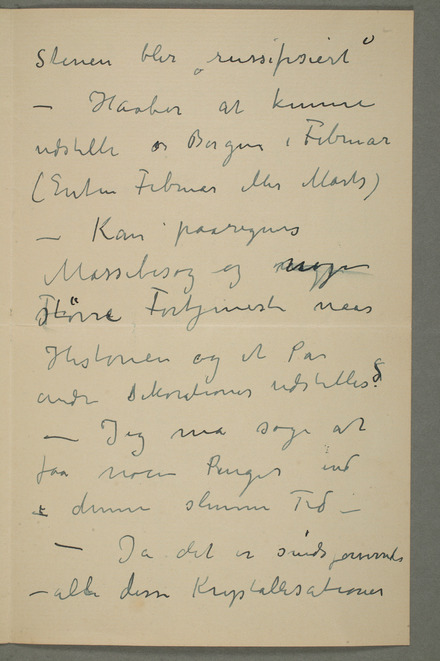 Stenen blir „russifisiert"
– Haaber at kunne
udstille i Bergen i Februar
(Enten Februar eller Marts)
– Kan paaregnes
Massebesøg og
større Fortjeneste naar
Historien og et Par
andre Dekorationer udstilles?
– Jeg må søge at
faa noen Penger ind
i denne slemme Tid –
– Ja det er
– alle disse Krystallisationer